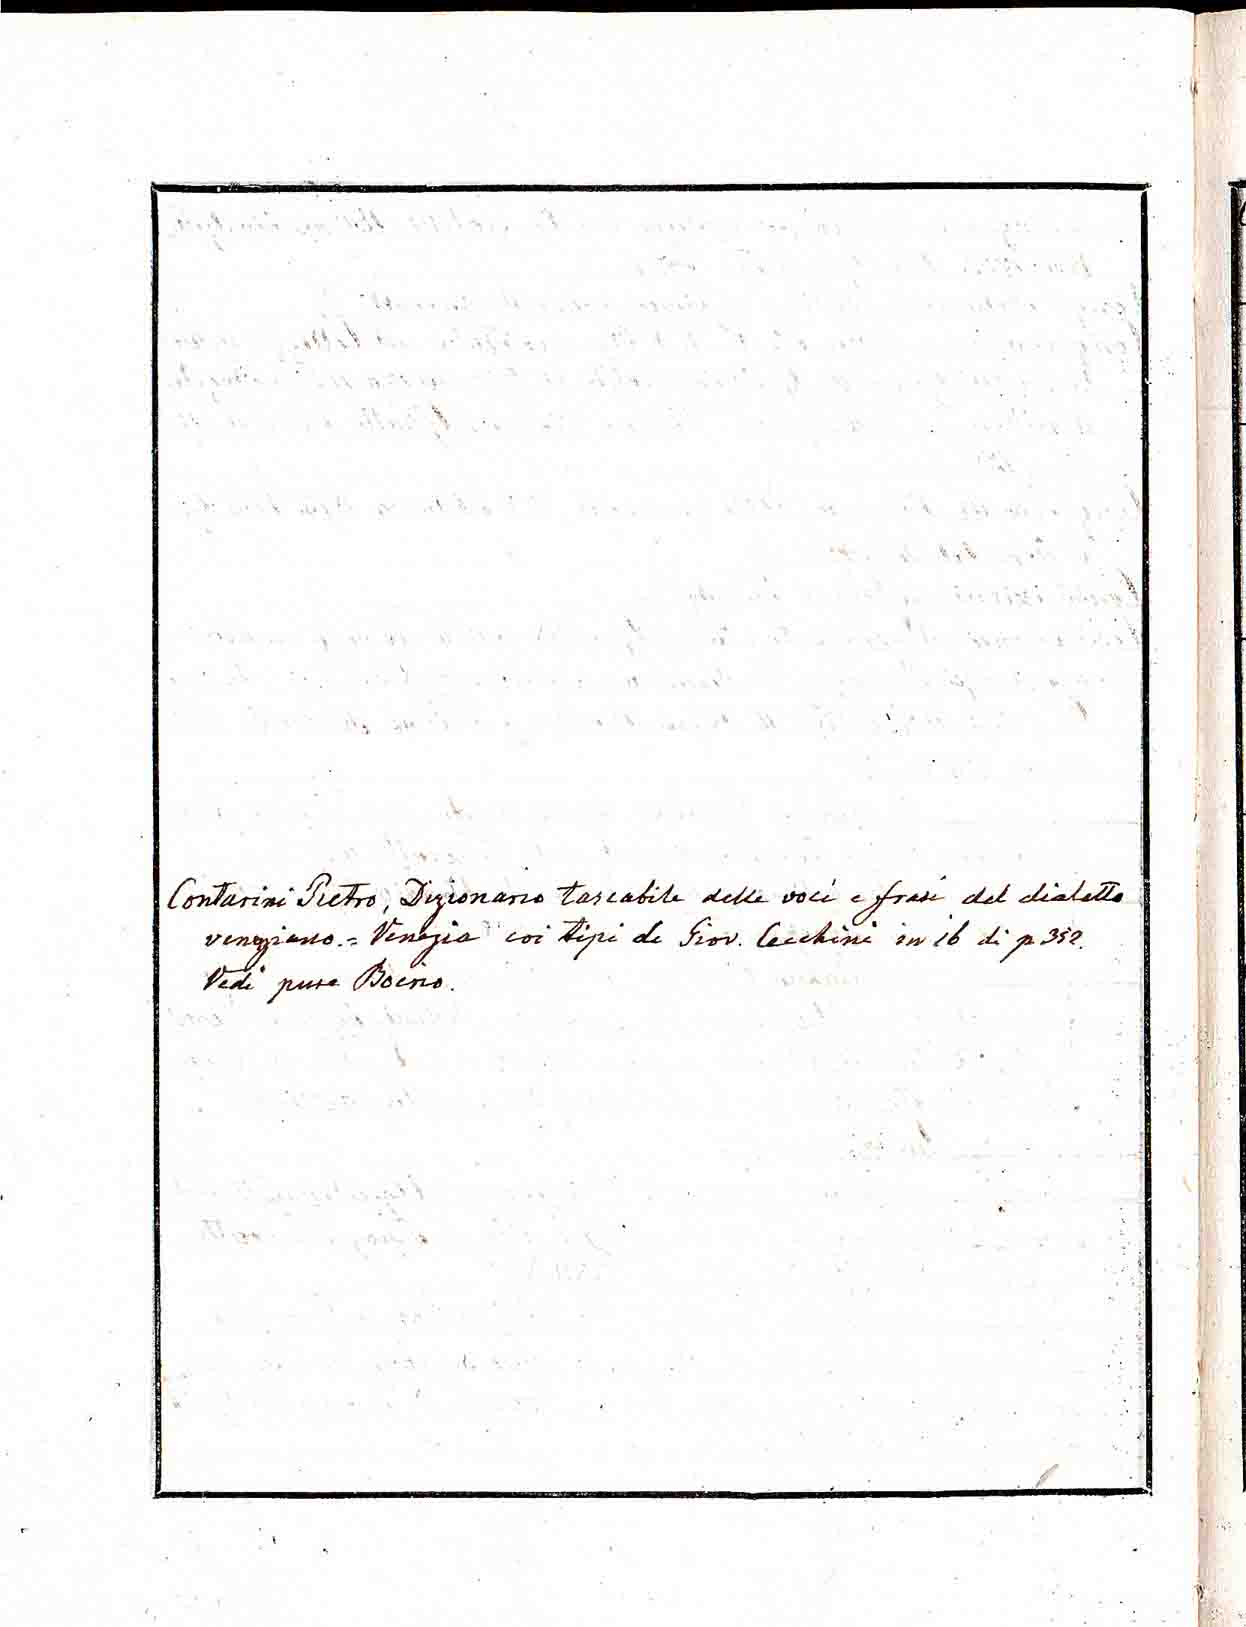 Contarini Pietro, Dizionario tascabile delle voci e frasi del dialetto
veneziano. = Venezia coi tipi di Giov. Cecchini in 16 di p 352.
Vedi pure Boerio.